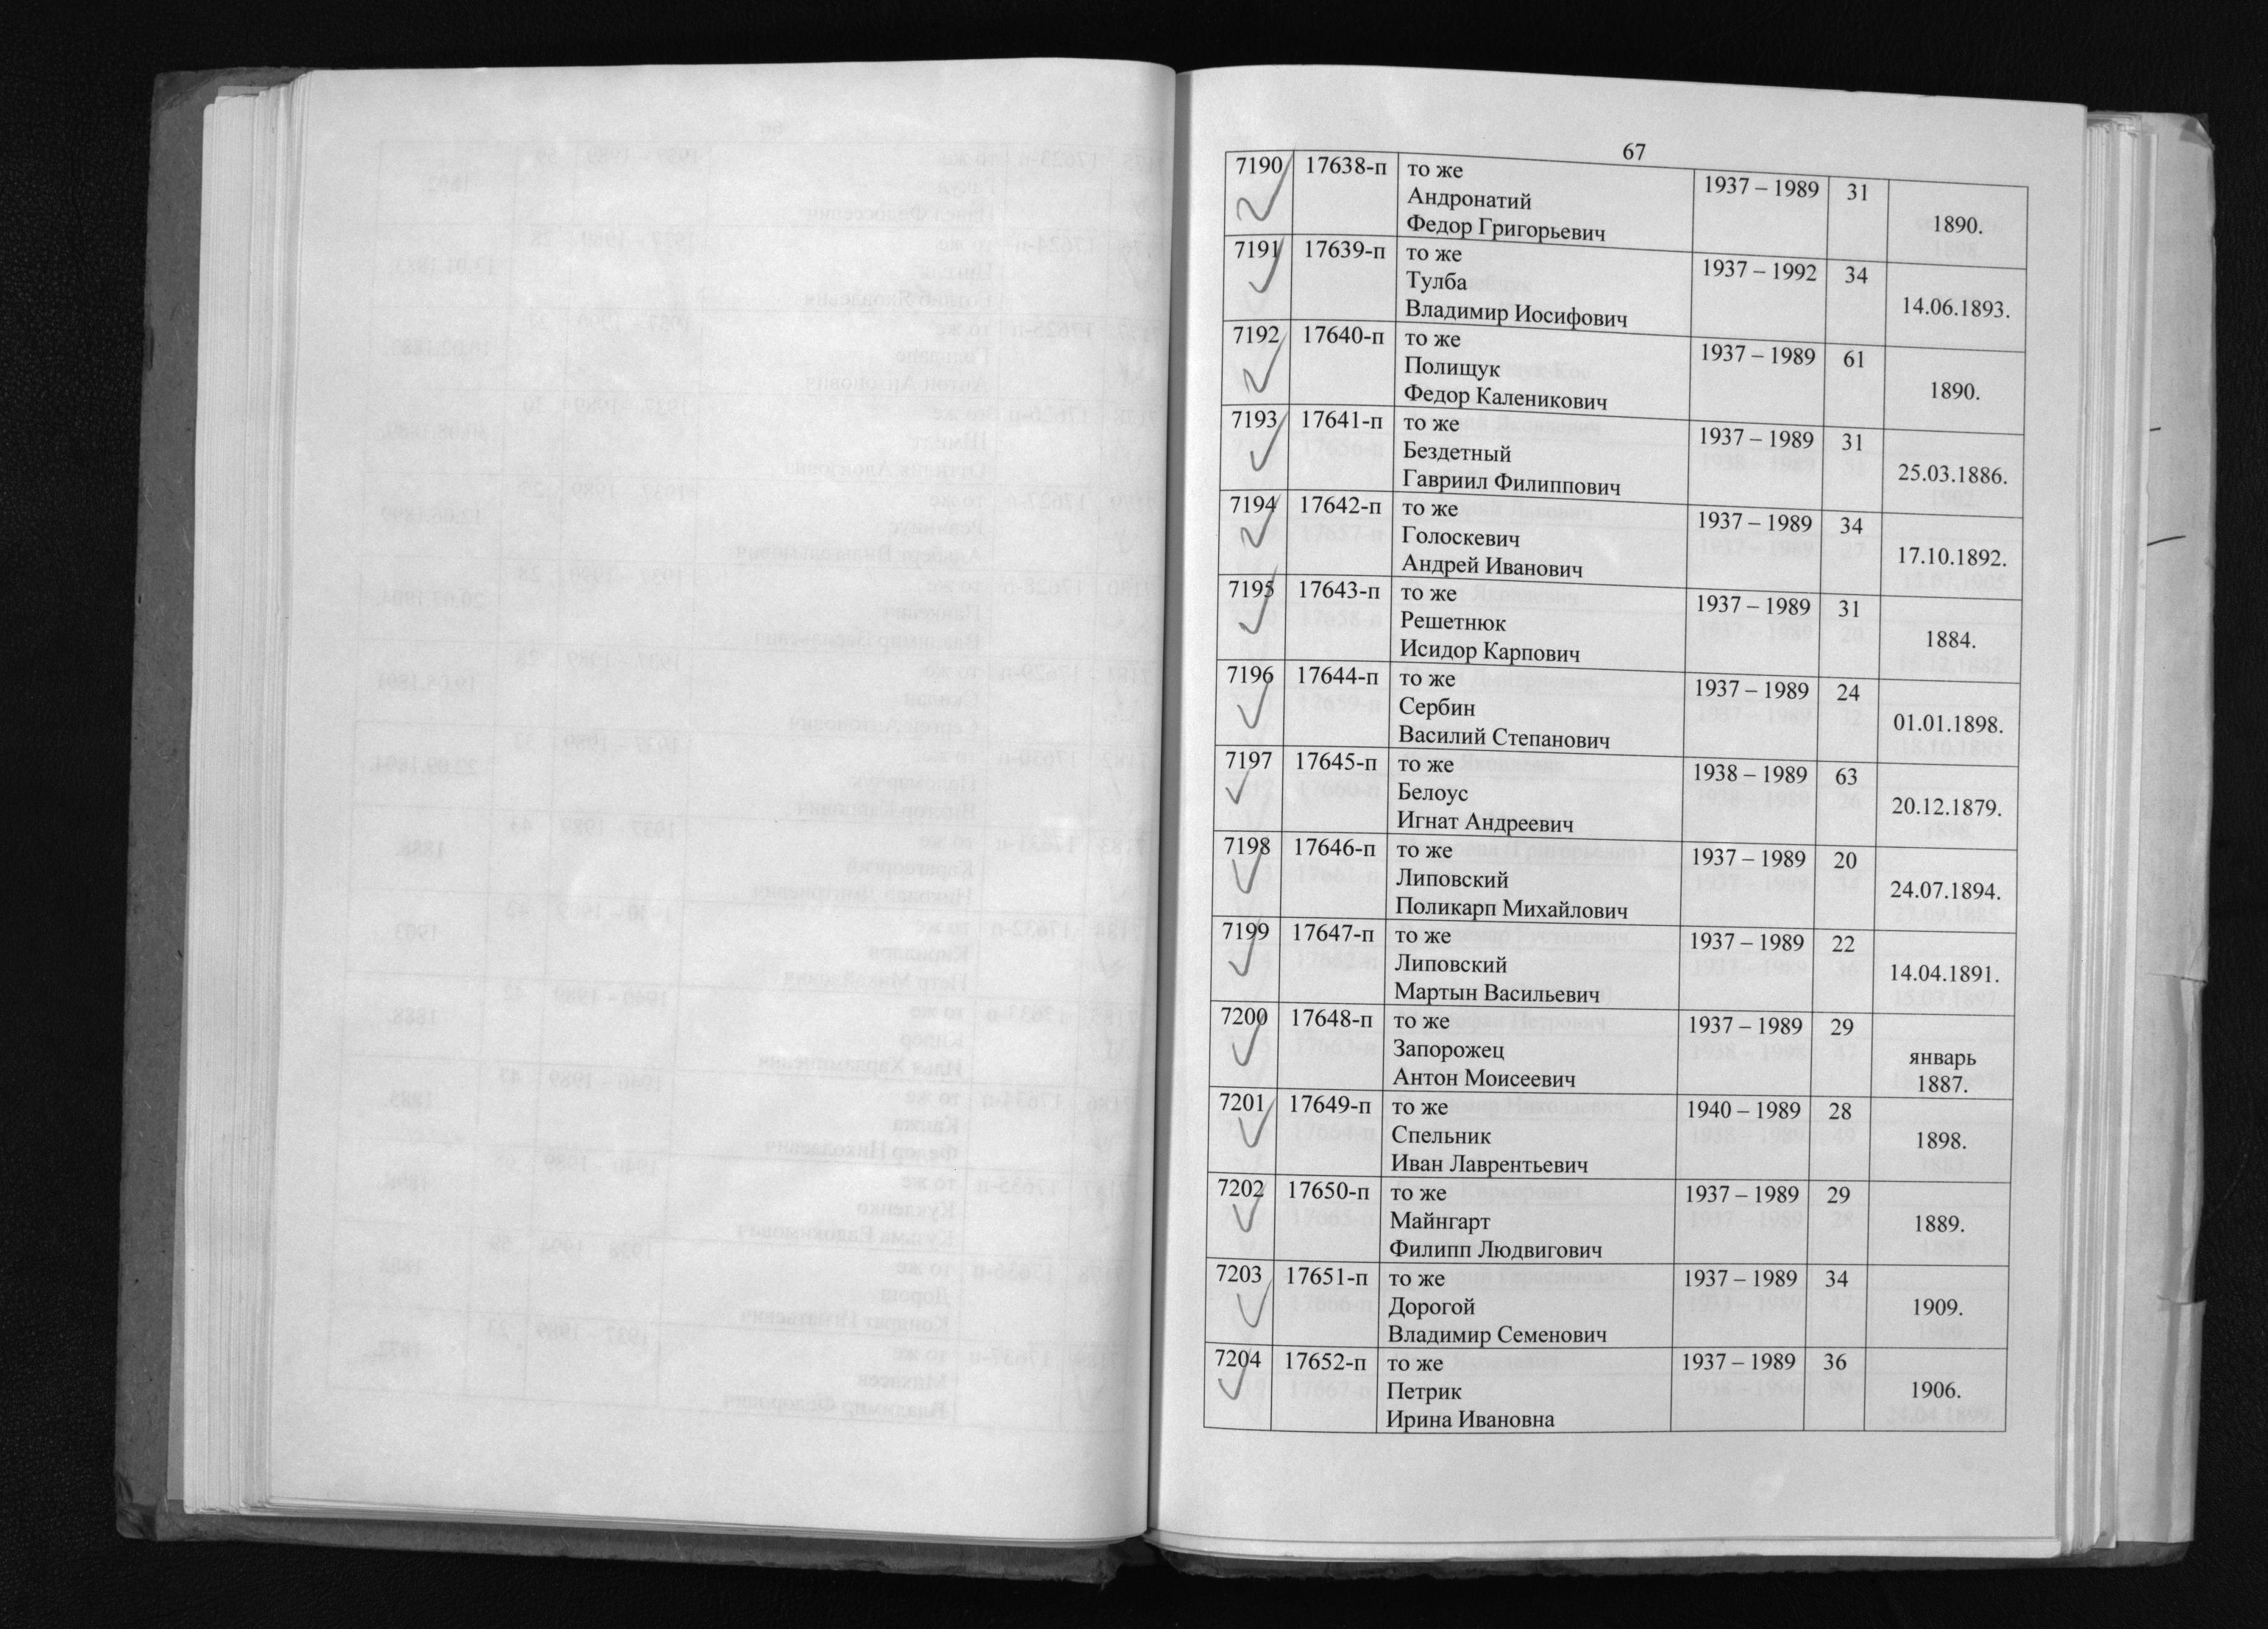 67
7190 17638-п то же 1937 – 1989 31
Андронатий
Федор Григорьевич 1890.
7191 17639-п то же 1937 – 1992 34
Тулба
Владимир Иосифович 14.06.1893.
7192 17640-п то же 1937 – 1989 61
Полищук
Федор Каленикович 1890.
7193 17641-п то же 1937 – 1989 31
Бездетный
Гавриил Филиппович 25.03.1886.
7194 17642-п то же 1937 – 1989 34
Голоскевич
Андрей Иванович 17.10.1892.
7195 17643-п то же 1937 – 1989 31
Решетнюк
Исидор Карпович 1884.
7196 17644-п то же 1937 – 1989 24
Сербин
Василий Степанович 01.01.1898.
7197 17645-п то же 1938 – 1989 63
Белоус
Игнат Андреевич 20.12.1879.
7198 17646-п то же 1937 – 1989 20
Липовский
Поликарп Михайлович 24.07.1894.
7199 17647-п то же 1937 – 1989 22
Липовский
Мартын Васильевич 14.04.1891.
7200 17648-п то же 1937 – 1989 29
Запорожец январь
Антон Моисеевич 1887.
7201 17649-п то же 1940 – 1989 28
Спельник
Иван Лаврентьевич 1898.
7202 17650-п то же 1937 – 1989 29
Майнгарт
Филипп Людвигович 1889.
7203 17651-п то же 1937 – 1989 34
Дорогой
Владимир Семенович 1909.
7204 17652-п то же 1937 – 1989 36
Петрик
Ирина Ивановна 1906.